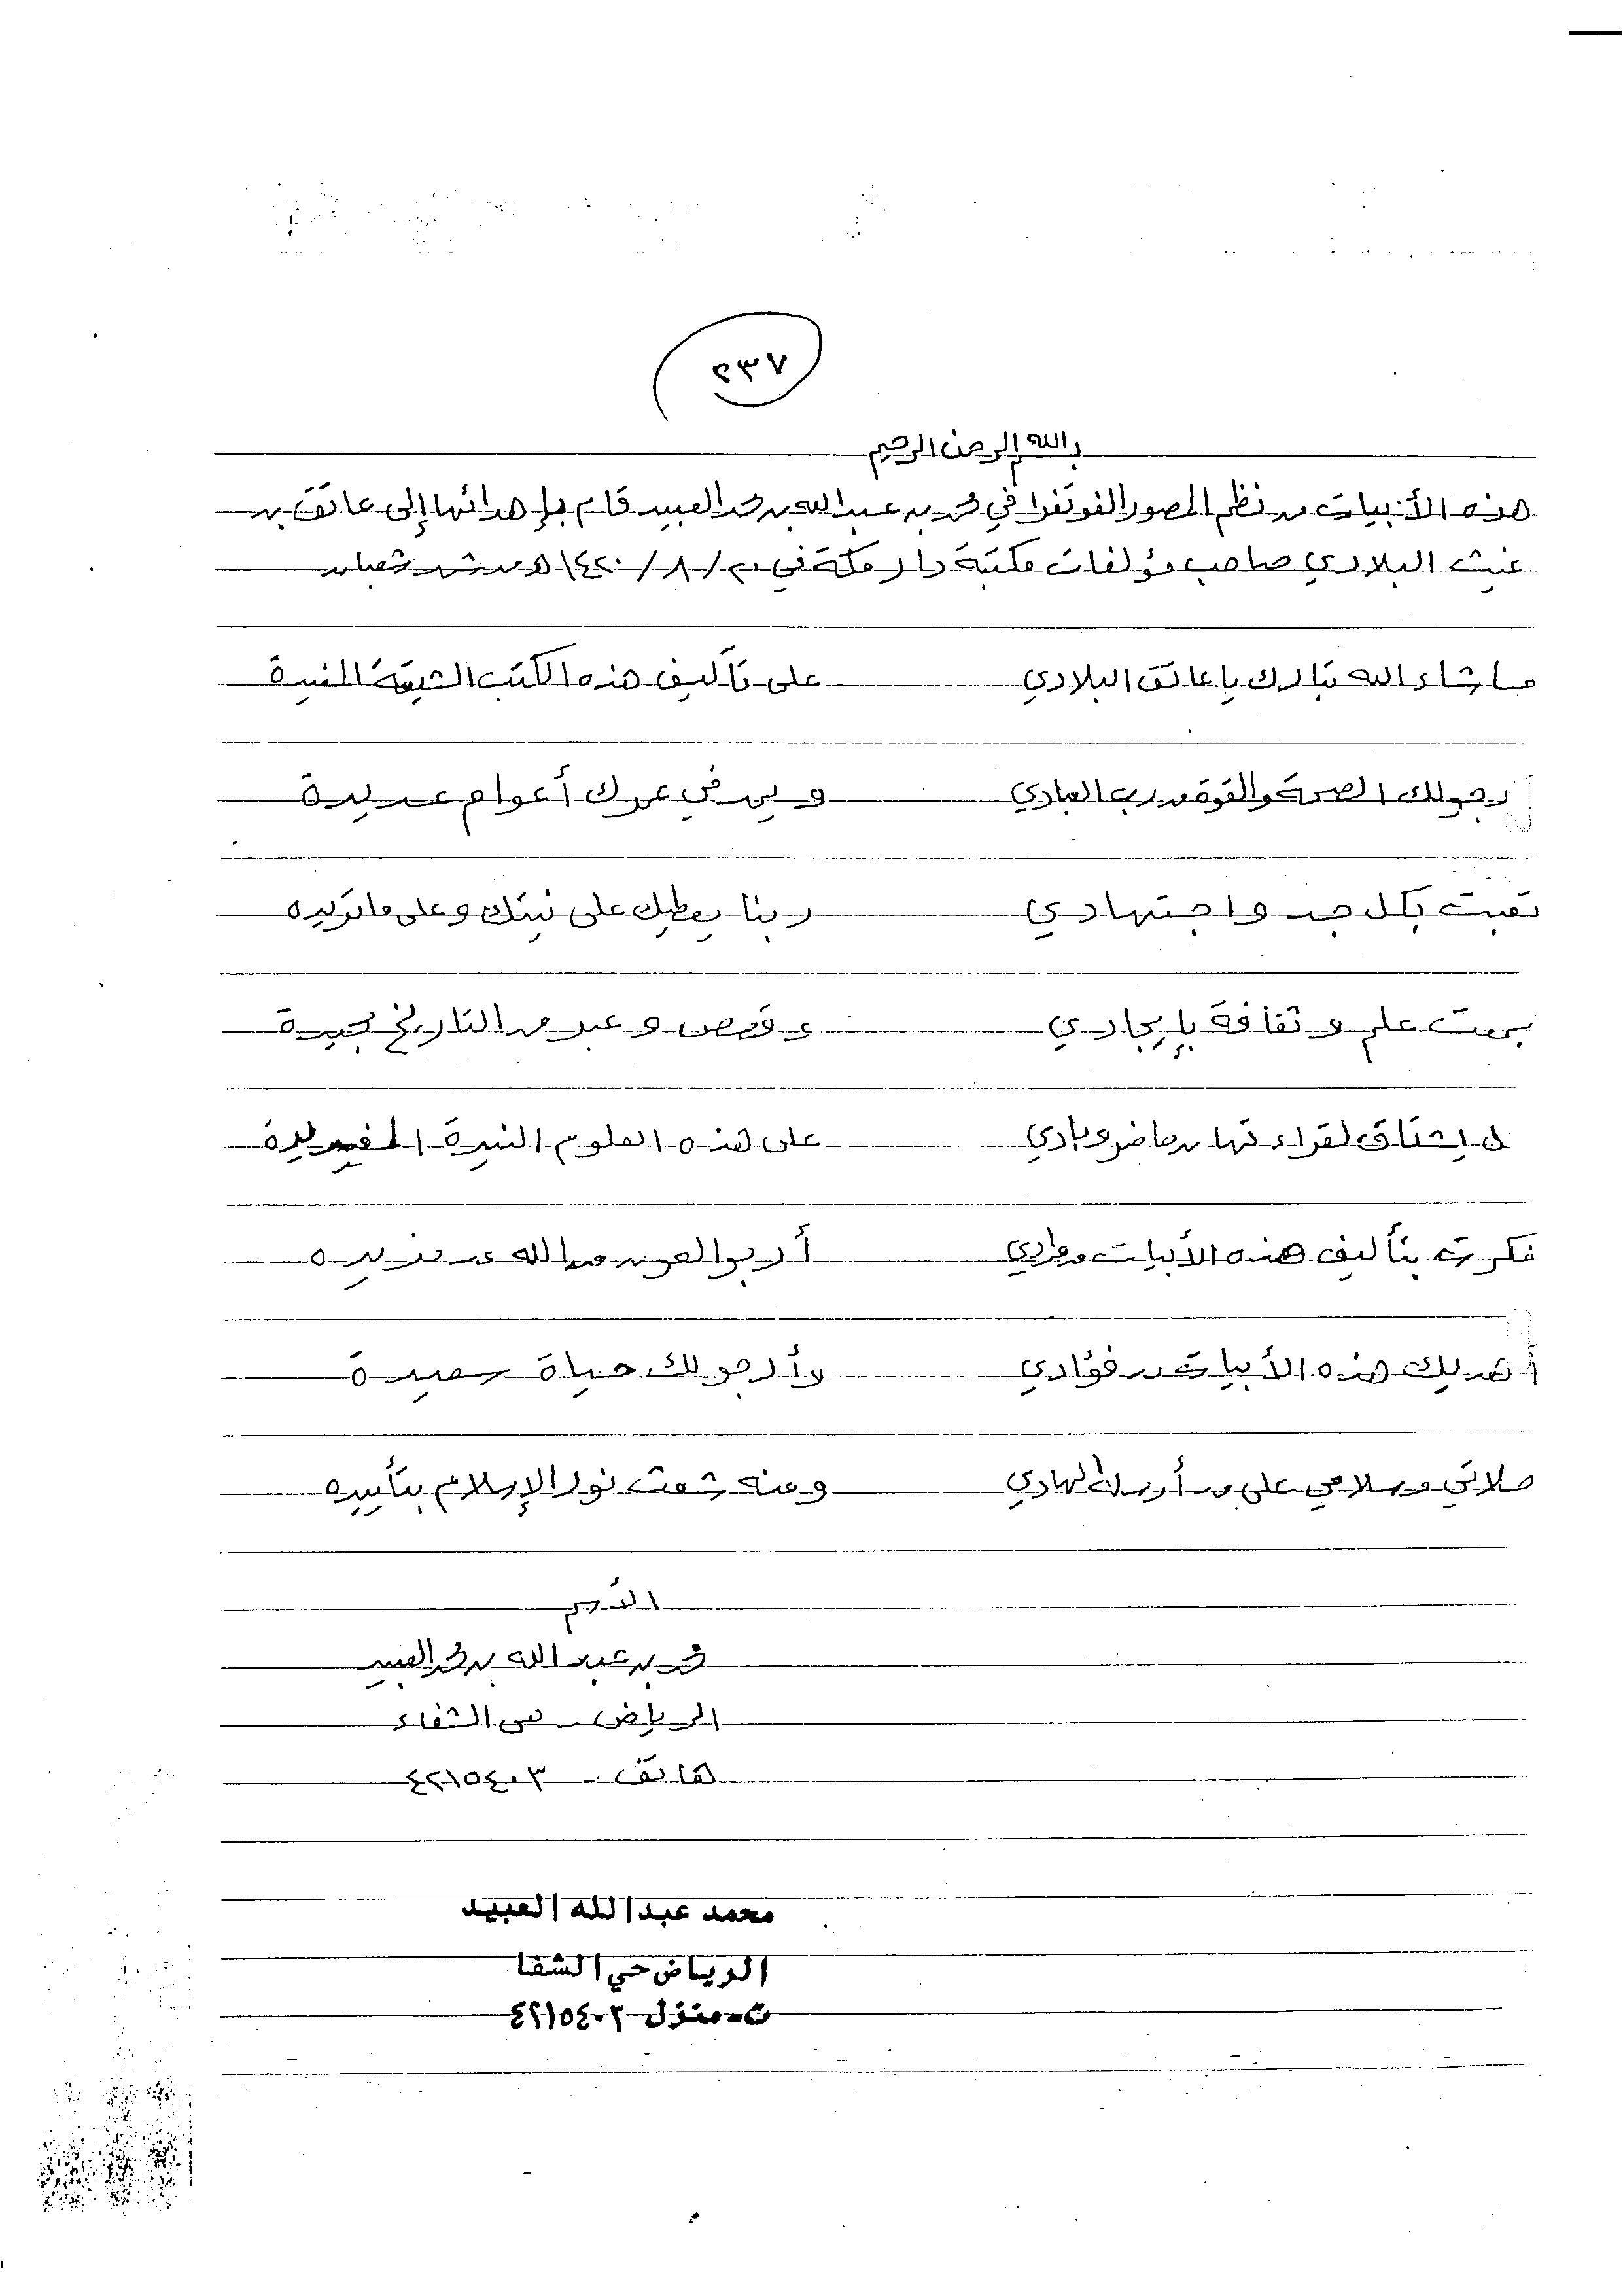 ٢٣٧
بسم الله الرحمن الرحيم
هذه الأبيات من نظم المصور الفوتغرافي محمد بن عبدالله بن محمد العبيد قام بإهدائها إلى عاتق بن
غيث البلادي صاحب مؤلفات مكتبة دار مكة في ٢٠ /٨ /١٤٢٠هـ من شهر شعبان
ما شاء الله تبارك يا عاتق البلادي على تأليف هذه الكتب الشيقة المفيدة
رجو لك الصحة والقوة من رب العبادي ويمد في عمرك أعوام عديدة
تعبت بكل جد واجتهادي ربنا يعطيك على نيتك وعلى ما تريده
جمعت علم وثقافة بإيجادي وقصص وعبر من التاريخ مجيدة
ل يشتاق لقراءتها من حاضر وبادي على هذه العلوم النيرة
فكرت بتأليف هذه الأبيات مرادي أرجو العون من الله من مزيده
أهديك هذه الأبيات من فؤادي وأرجو لك حياة سعيدة
صلاتي وسلامي على من أرسله الهادي ومنه شعت نور الإسلام بتأييده
الأسم
محمد بن عبد الله بن محمد العبيد
الرياض - حي الشفاء
هاتف - ٤٢١٥٤٠٣
محمد عبدالله العبيد
الرياض حي الشفا
ت-منزل ٤٢١٥٤٠٣